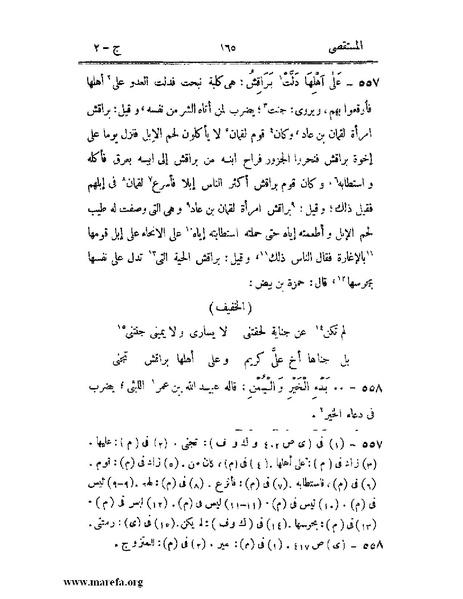 المستقصى ١٦٥ ج - ٢
٥٥٧ - عَلَى أَهْلِهَا دَلَّتْ١ بَرَاقِشُ: هى كلبة نبحت فدلت العدو على٢ أهلها
فأوقعوا بهم، ويروى: جنت٣؛ يضرب لمن أتاه الشر من نفسه٤ و قيل: براقش
امرأة لقمان بن عاد، وكان٥ قوم لقمان لا يأكلون لحم الإبل فنزل يوما على
إخوة براقش فنحروا الجزور فراح ابنه من براقش إلى ابيه بعرق فأكله
و استطابه٦ و كان قوم براقش أكثر الناس إبلا فأسرع٧ لقمان٨ فى إبلهم
فقيل ذلك؛ و قيل: ٩براقش امرأة لقمان بن عاد٩ و هى التى وصفت له طيب
لحم الإبل و أطعمته إياه حتى حملته استطابته إياه١٠ على الانحاء على إبل قومها
١١بالإغارة فقال الناس ذلك١١، و قيل: براقش الحية التى١٢ تدل على نفسها
بجرسها١٣، قال: حمزة بن بيض:
(الخفيف)
لم تكن١٤ عن جناية لحقتنى لا يسارى ولا يمينى جنتنى١٥
بل جناها أخ علىّ كريم وعلى أهلها براقش تجنى
٥٥٨ - .. بَدْءِ الْخَيْرِ وَالْيُمْنِ: قاله عبيد الله بن عمر١ الليثى؛ يضرب
فى دعاء الخير٢.
٥٥٧ - (١) فى (ى ص ٤٠٢ و ك و ف): تجنى. (٢) فى (م): عليها.
(٣) زاد فى (م): على أهلها. (٤) فى (م)، كان من. (٥) زاد فى (م): قوم.
(٦) فى (م)، فاستطابه. (٧) فى (م): فأسرع. (٨) فى (م): لهد. (٩-٩) ليس
فى (م). (١٠) ليس فى (م). (١١-١١) ليس فى (م). (١٢) ليس فى (م).
(١٣) فى (م): بجرسها. (١٤) فى (ك و ف): لم يكن. (١٥) فى (ى): رمتنى.
٥٥٨ - (ى ص ٤١٧. (١) فى (م): عمير. (٢) فى (م): المتزوج.
www.marefa.org